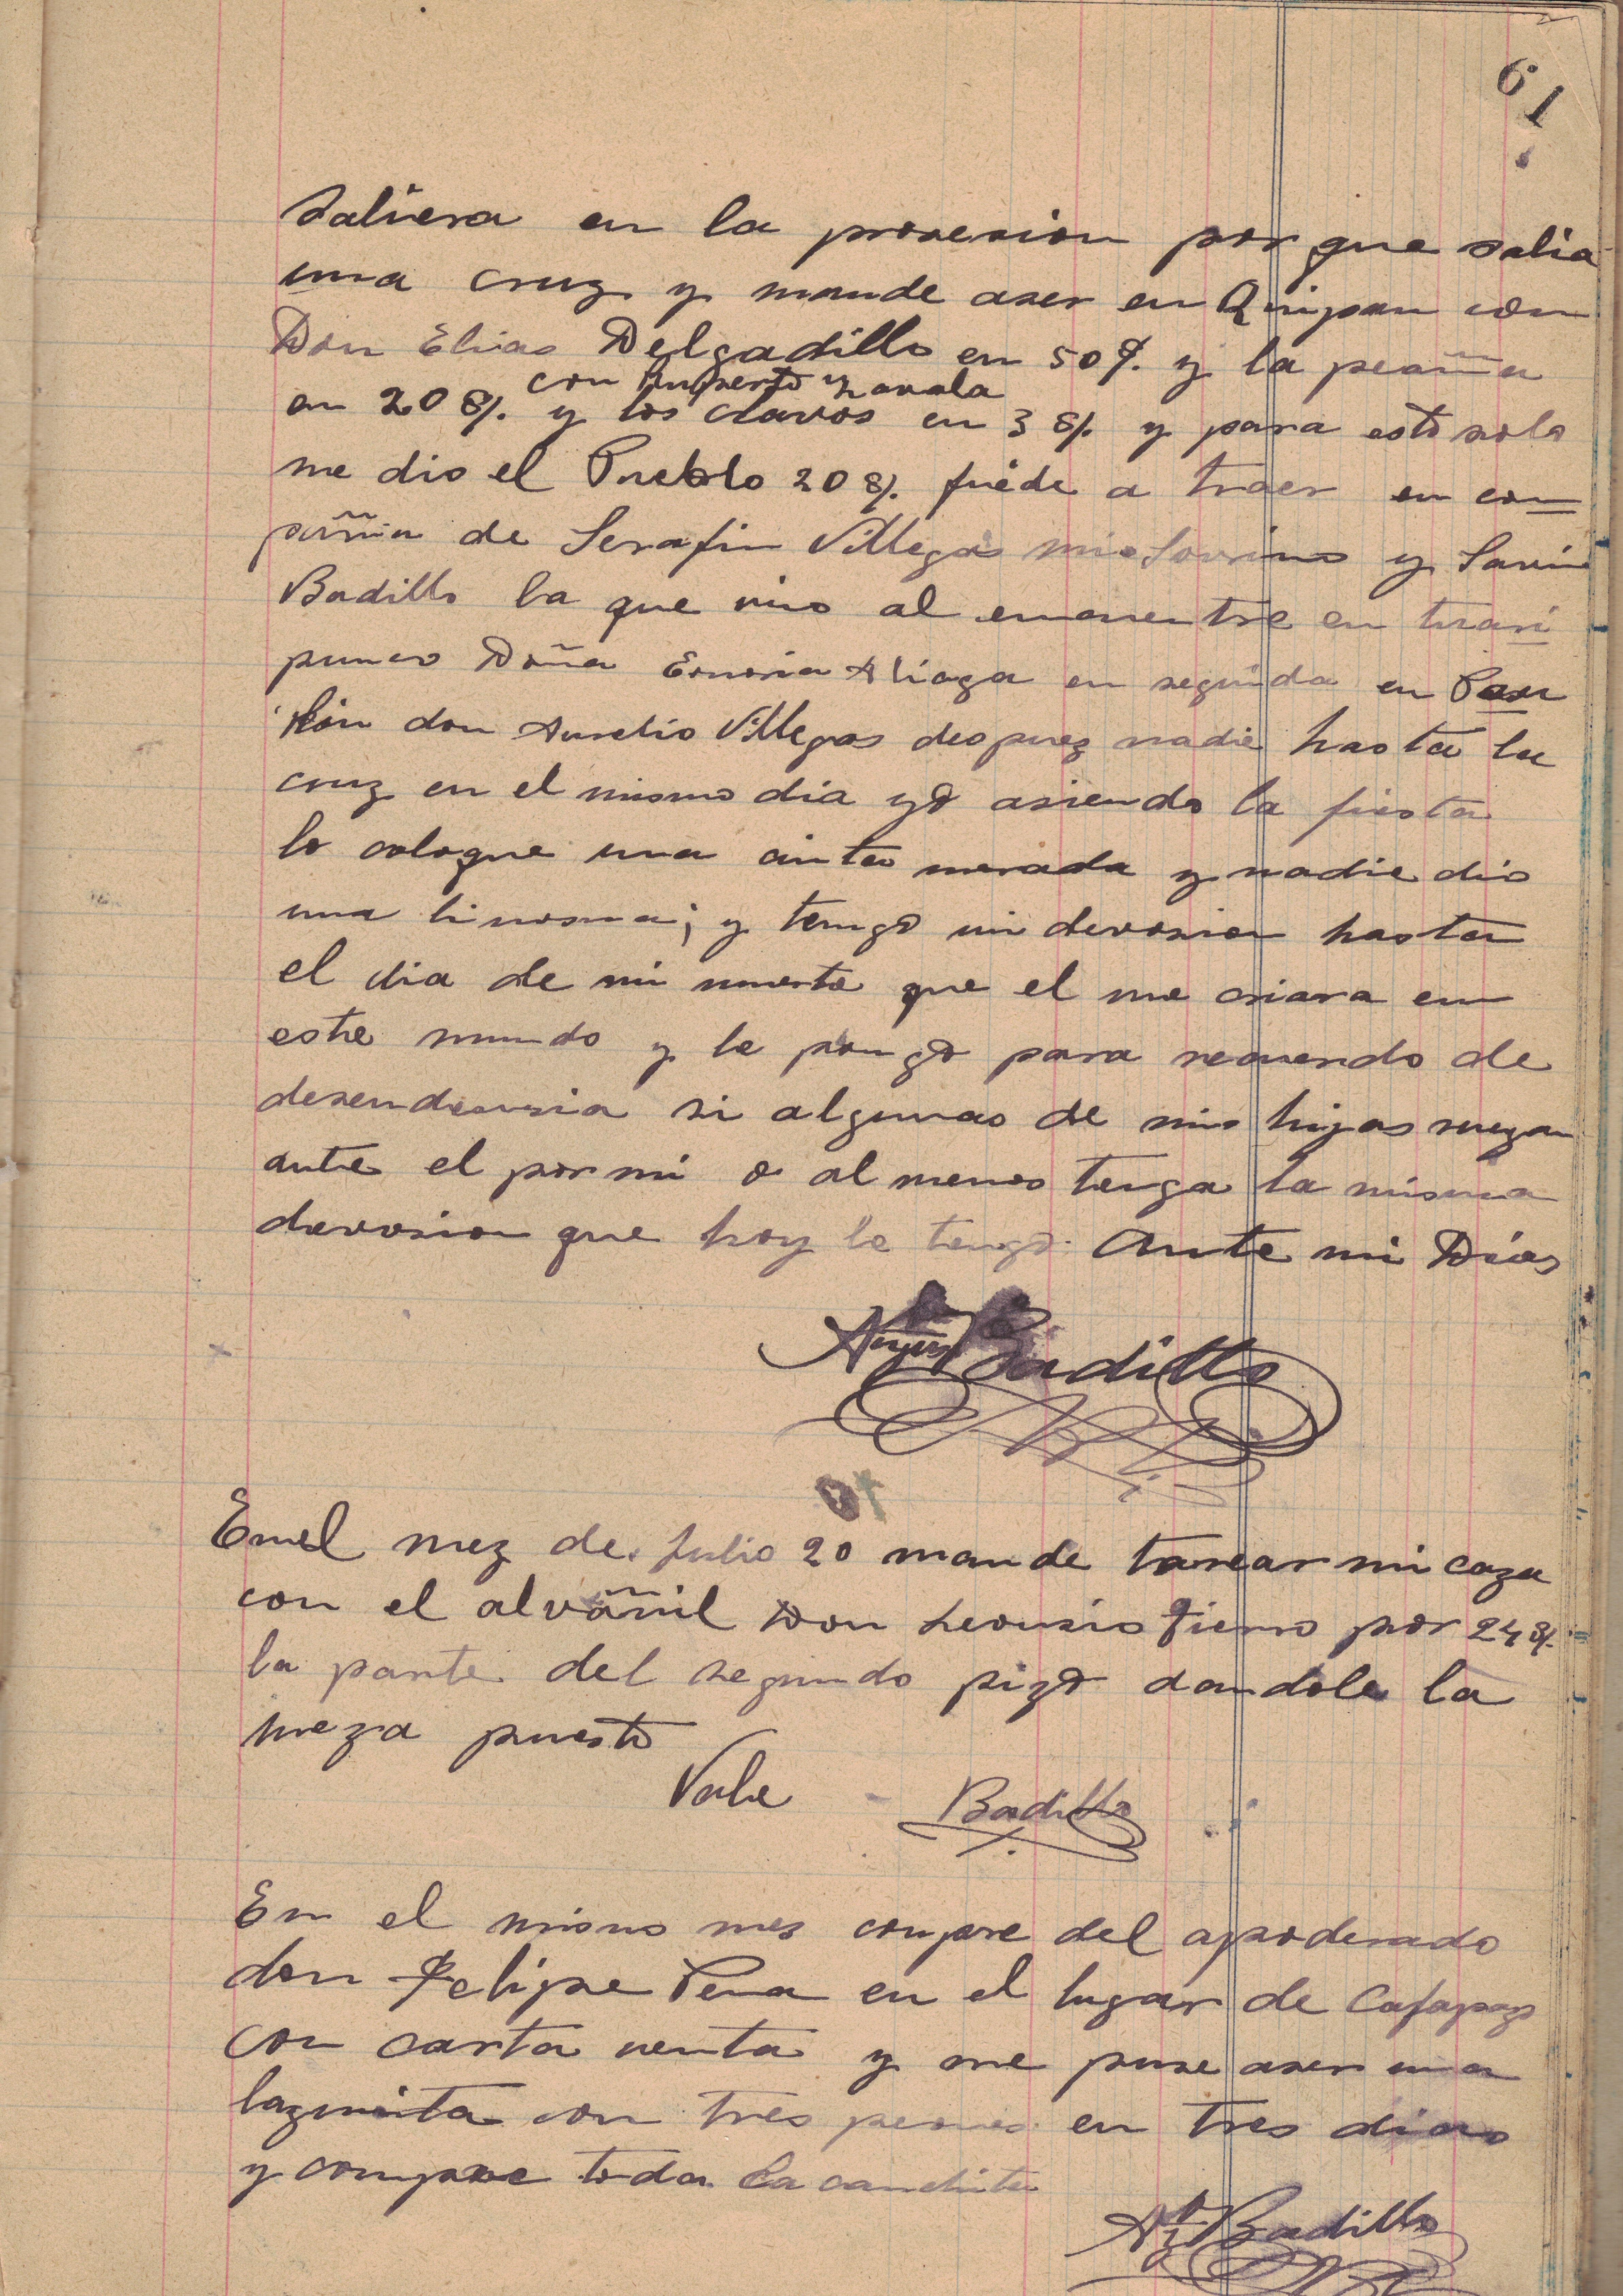 61
Saliera en la prosesion por que salia
una cruz y mande aser en Quipan con
Don Elias Delgadillo en 50 $. y la peaña
con Ruperto Zavala
en 20 $/. y los clavos en 3 $/. y para esto solo
me dio el Pueblo 20 $/. fuéde a traer en com=
pañia de Serafin Villegas mi Sovrino y Savi
Badillo la que vino al encuentre en
punco Doña Aliaga en seguida en Pan
kón don Aurelio Villegas despuez nadie hasta la
cruz en el mismo dia yo asiendo la fiesta
lo coloque una cinta morada y nadie dio
una linosna; y tengo mi devosion hasta
el dia de mi muerte que el me criara en
este mundo y le pongo para recuerdo de
desendensia si algunas de mis hijas ruegan
ante el por mi o al menos tenga la misma
devosion que hoy le tengo. Ante mi Dios
Badillo
Enel mez de Julio 20 mande tarear mi caza
con el alvañil Don Leonsio Fierro por 24 $/.
la parte del segundo pizo dandole la
meza puesto
Vale Badillo
En el mismo mes compre del apoderado
don Felipe Pena en el lugar de Cafapaz
con carta venta y me puse aser una
lazunita con tres peones en tres dias
y compre toda la canchita
Badillo